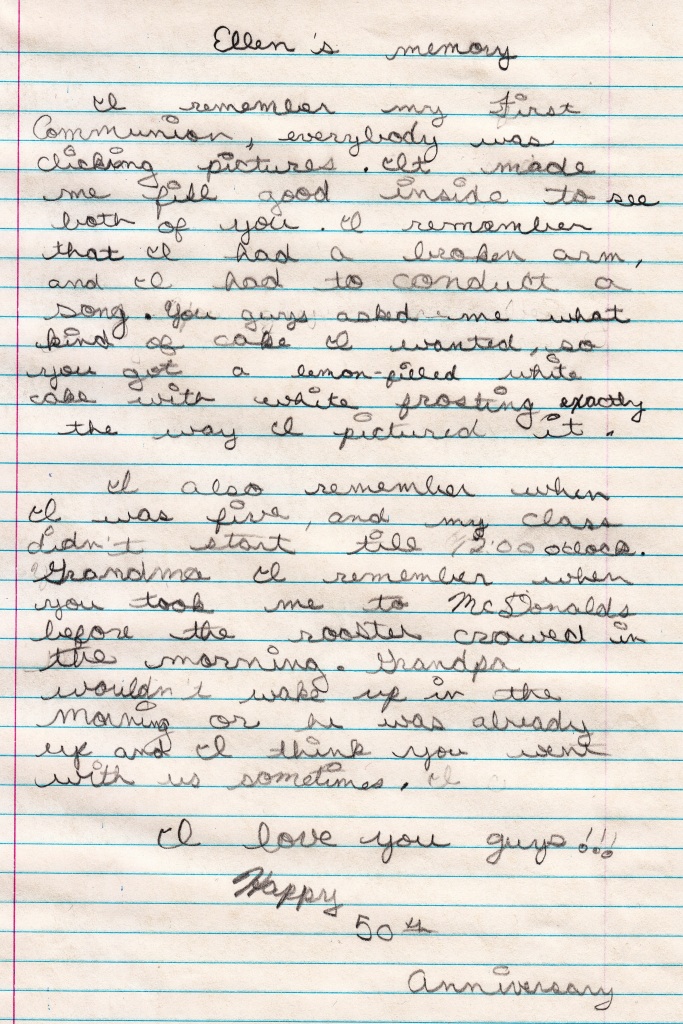 Ellen's memory
I remember my first
Communion, everybody was
clicking pictures. It made
me fill good inside to see
both of you. I remember
that I had a broken arm,
and I had to conduct a
song. You guys asked me what
kind of cake I wanted, so
you got a lemon-filled white
cake with white frosting exactly
the way I pictured it.
I also remember when
I was five, and my class
didn't start till oclock.
Grandma I remember when
you took me to McDonalds
before the rooster crowed in
the morning. Grandpa
wouldn't wake up in the
morning or he was already
up and I think you went
with us sometimes. I
I love you guys!!!
Happy
50th
Anniversary